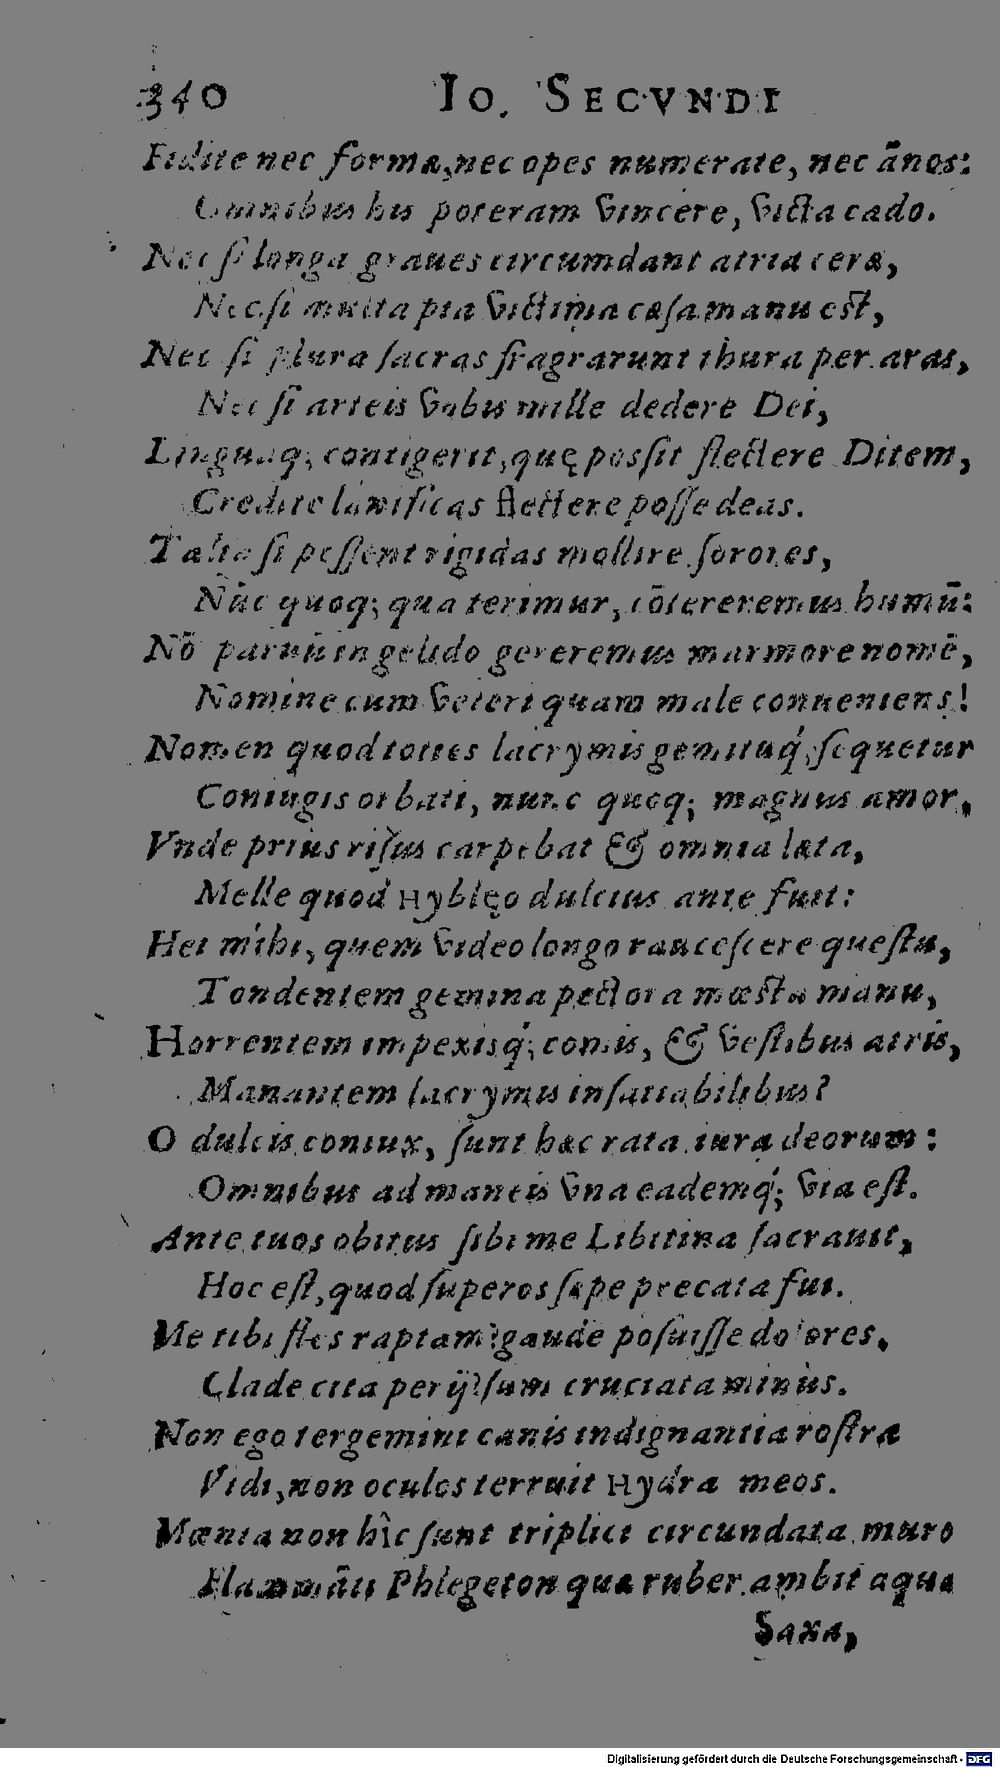 340 IO. SECVNDI
Fidite nec formæ, nec opes numerate, nec ãnos:
Omnibus his poteram vincere, victa cado.
Nec si longa graues circumdant atria ceræ,
Nec si multa pia victima cæsa manu est,
Nec si plura sacras fragrarunt thura per aras,
Nec si arteis vobis mille dedere Dei,
Linguaq; contigerit, quę possit flectere Ditem,
Credite lanificas flectere posse deas.
Talia si possent rigidas mollire sorores,
Nũc quoq; qua terimur, cõtereremus humũ:
Nõ paruũ in gelido gereremus marmore nomẽ,
Nomine cum veteri quam male conueniens!
Nomen quod toties lacrymis gemituq́; sequetur
Coniugis orbati, nunc quoq; magnus amor,
Vnde prius risus carpebat & omnia læta,
Melle quod Hyblęo dulcius ante fuit:
Hei mihi, quem video longo raucescere questu,
Tondentem gemina pectora mœsta manu,
Horrentem impexisq́; comis, & vestibus atris,
Manantem lacrymis insatiabilibus?
O dulcis coniux, sunt hæc rata iura deorum:
Omnibus ad maneis vna eademq́; via est.
Ante tuos obitus sibi me Libitina sacrauit,
Hoc est, quod superos sæpe precata fui.
Me tibi fles raptam? gaude posuisse dolores,
Clade cita perij? sum cruciata minùs.
Non ego tergemini canis indignantia rostra
Vidi, non oculos terruit Hydra meos.
Mœnia non hîc sunt triplici circundata muro
Flammãti Phlegeton qua ruber ambit aqua
Saxa,
Digitalisierung gefördert durch die Deutsche Forschungsgemeinschaft - DFG